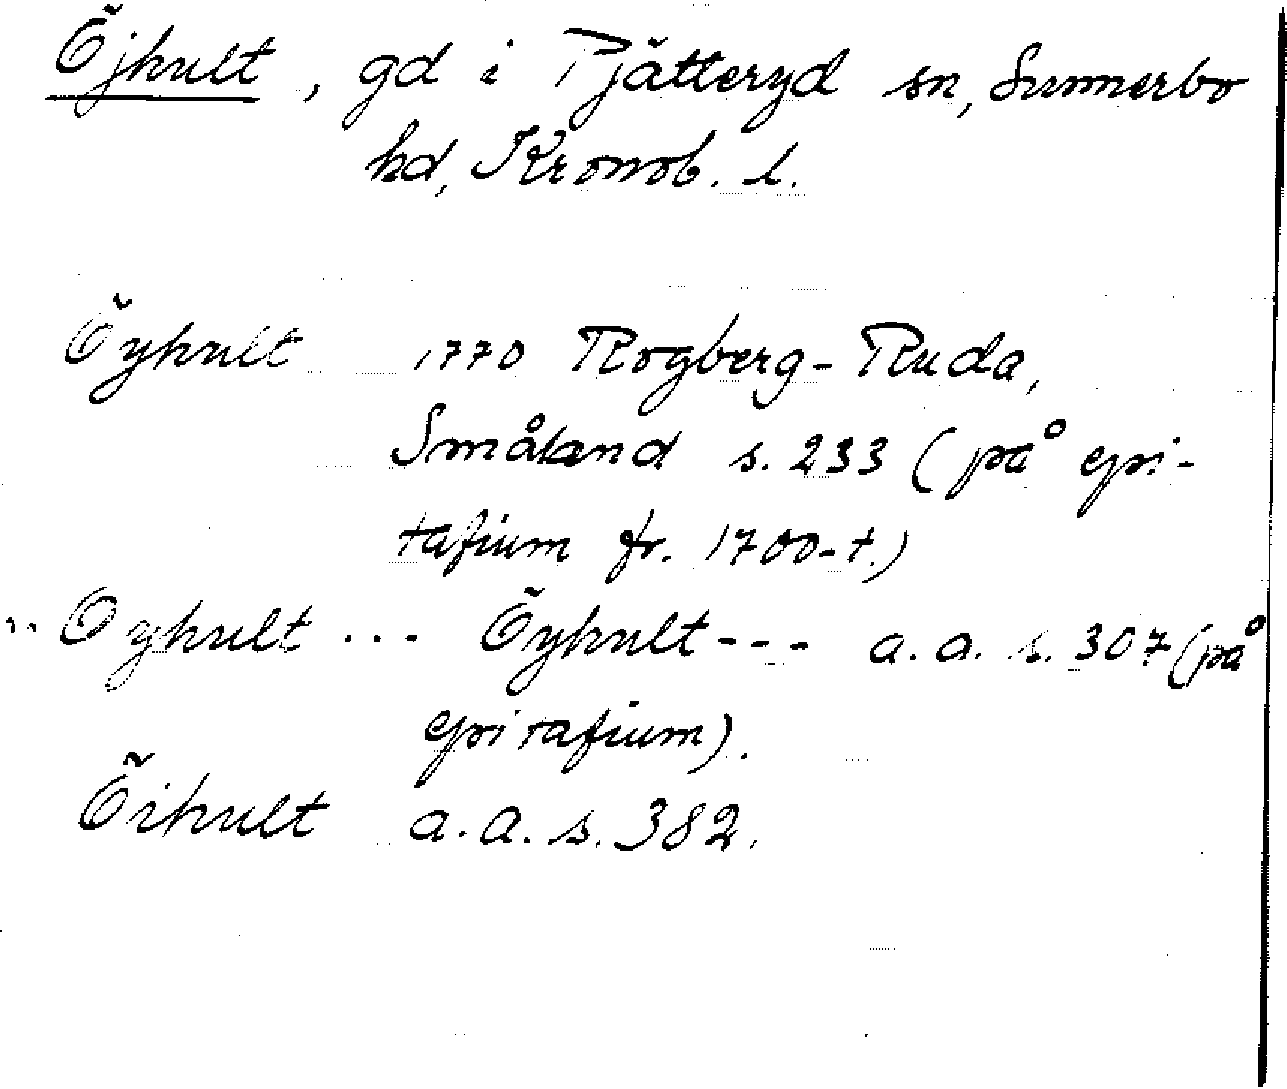 Öjhult, gd i Pjätteryd sn, Sunnerbo
hd, Kronob. l.
Öyhult 1770 Rogberg-Ruda,
Småland s. 233 (på epi-
tafium fr. 1700-t.)
.. Oyhult ... Öyhult --- a.a. s. 307 (på
epitafium).
Öihult a.a. s. 382.